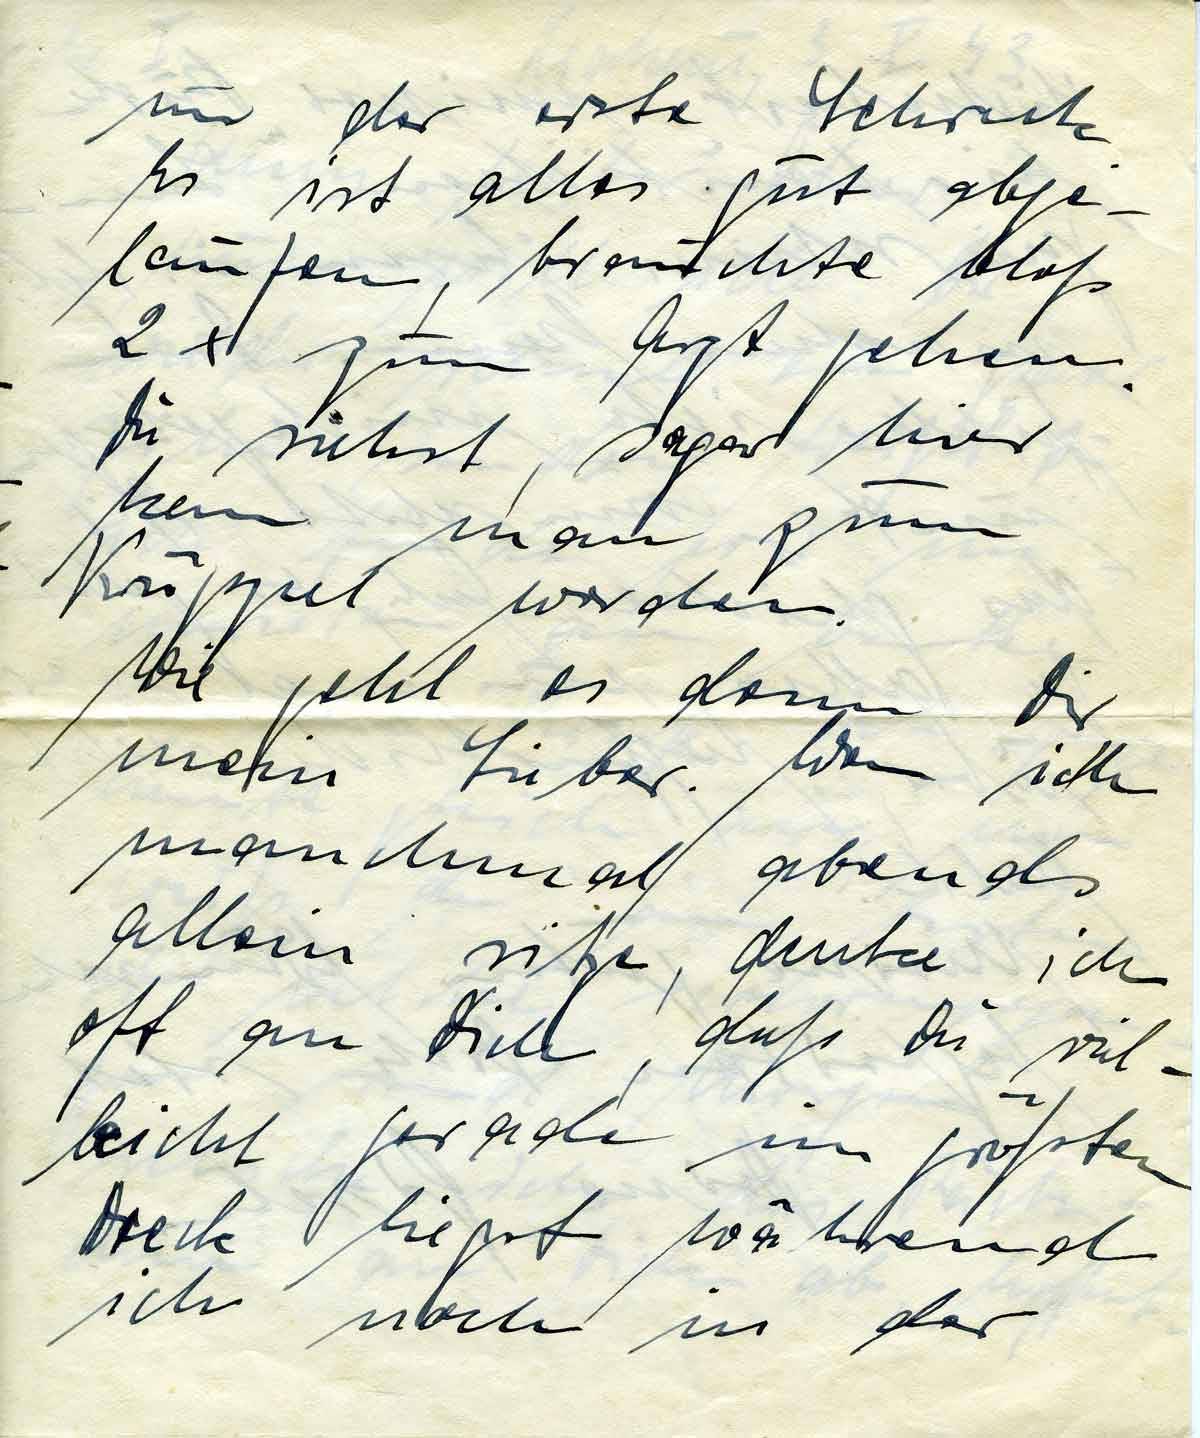 nur der erste Schreck.
Es ist alles gut abge-
laufen, brauchte bloß
2 x zum Arzt gehen.
Du siehst, sogar hier
kann man zum
Krüppel werden.
Wie geht es denn Dir
mein Lieber. Wenn ich
manchmal abends
allein sitze, denke ich
oft an Dich, daß Du viel-
leicht gerade im größten
Dreck liegst während
ich noch in der